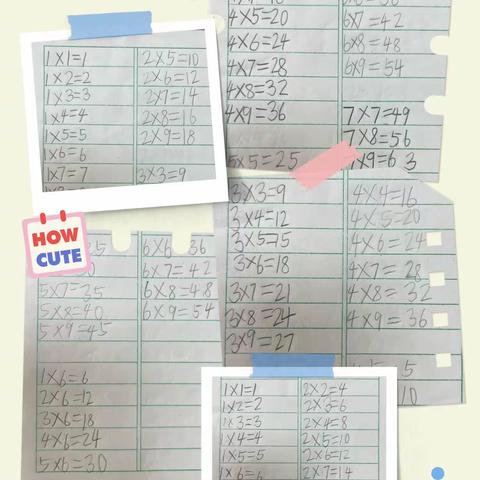 1×1=1
1×2=2
1×3=3
1×4=4
1×5=5
1×6=6
1×7=7
2×5=10
2×6=12
2×7=14
2×8=16
2×9=18
3×3=9
4×5=20
4×6=24
4×7=28
4×8=32
4×9=36
5×5=25
6×7=42
6×8=48
6×9=54
7×7=49
7×8=56
7×9=63
HOW
CUTE
5×7=35
5×8=40
5×9=45
1×6=6
2×6=12
3×6=18
4×6=24
5×6=30
6×6=36
6×7=42
6×8=48
6×9=54
3×3=9
3×4=12
3×5=15
3×6=18
3×7=21
3×8=24
3×9=27
4×4=16
4×5=20
4×6=24
4×7=28
4×8=32
4×9=36
1×1=1
1×2=2
1×3=3
1×4=4
1×5=5
1×6=6
2×2=4
2×3=6
2×4=8
2×5=10
2×6=12
2×7=14